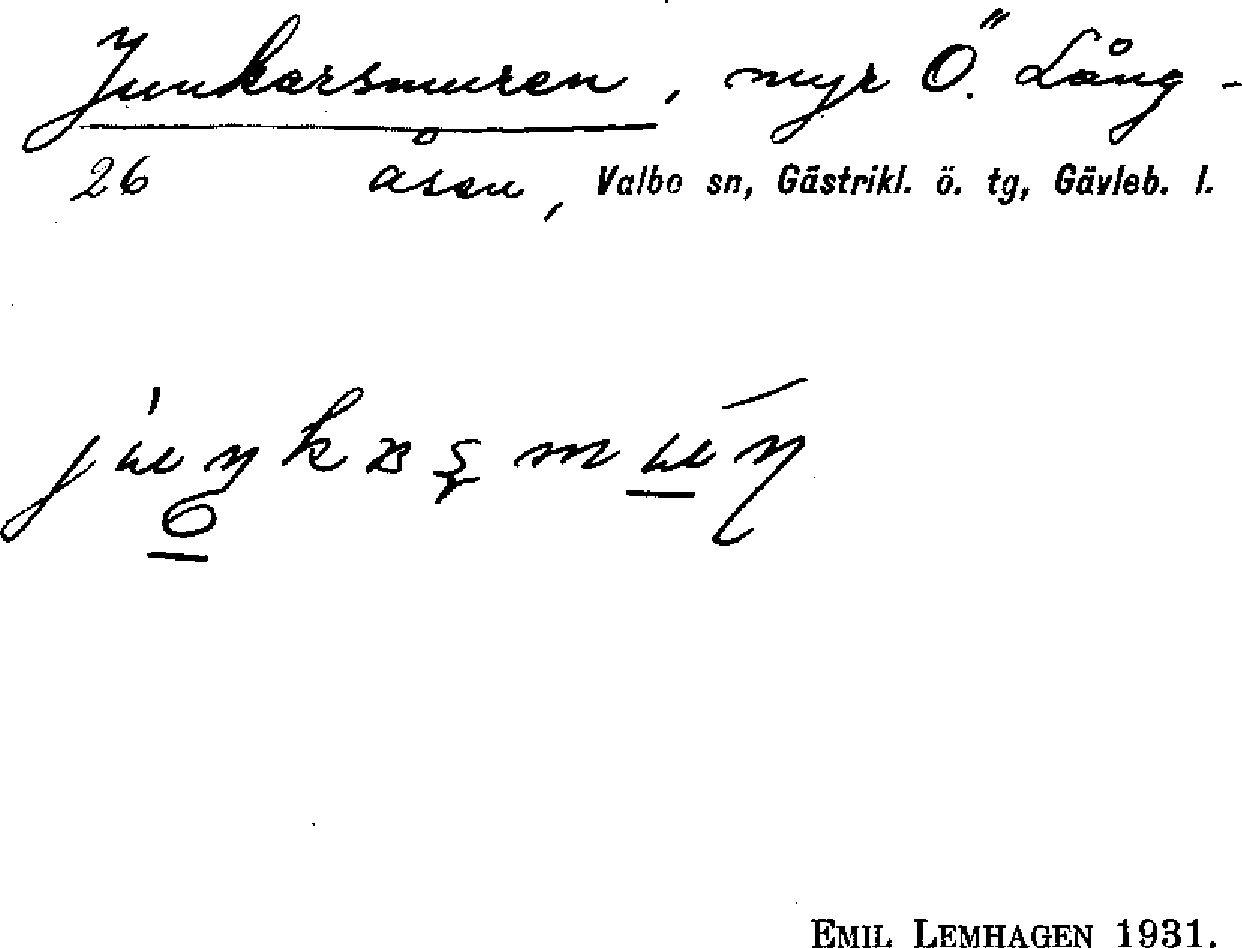 Junkarsmuren, myr Ö. Lång-
26 åsen, Valbo sn, Gästrikl. ö. tg, Gävleb. l.
EMIL LEMHAGEN 1931.